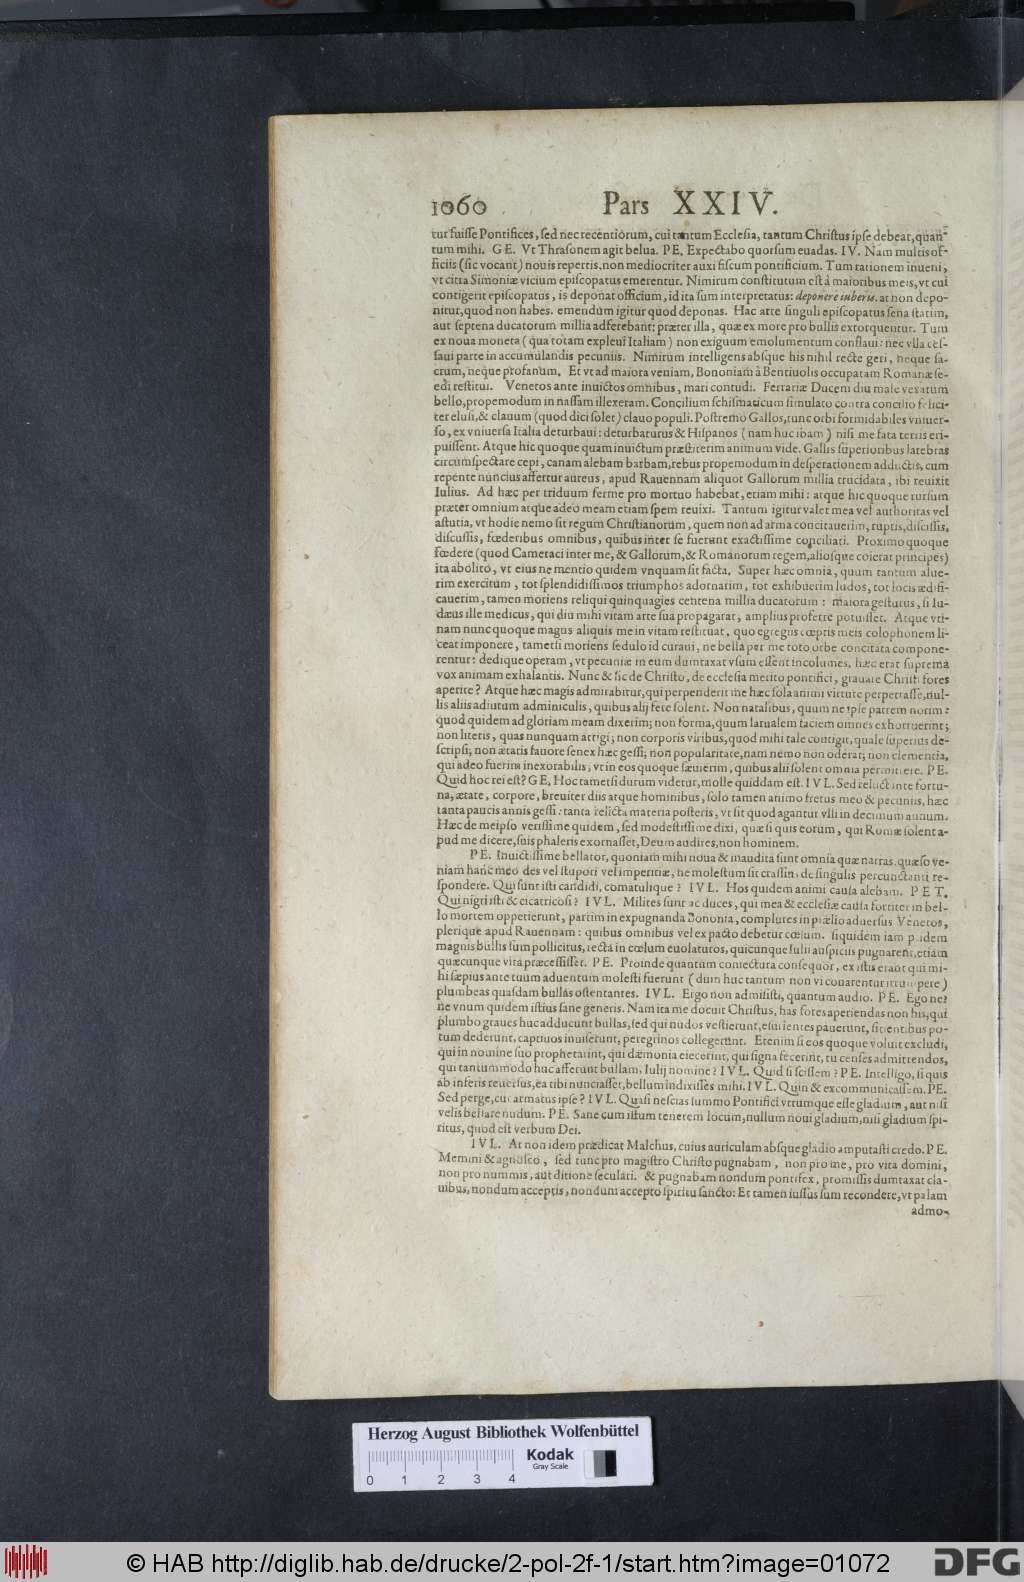 1060 Pars XXIV.
tur fuisse Pontifices, sed nec recentiorum, cui tantum Ecclesia, tantum Christus ipse debeat, quan-
tum mihi. GE. Vt Thrasonem agit belua. PE. Expectabo quorsum euadas. IV. Nam multis of-
ficiis (sic vocant) nouis repertis, non mediocriter auxi fiscum pontificium. Tum rationem inueni,
vt citra Simoniæ vicium episcopatus emerentur. Nimirum constitutum est à maioribus meis, vt cui
contigerit episcopatus, is deponat officium, id ita sum interpretatus: deponere iuberis. at non depo-
nitur, quod non habes. emendum igitur quod deponas. Hac arte singuli episcopatus sena statim,
aut septena ducatorum millia adferebant: præter illa, quæ ex more pro bullis extorquentur. Tum
ex noua moneta (qua totam expleui Italiam) non exiguum emolumentum conflaui: nec vlla ces-
saui parte in accumulandis pecuniis. Nimirum intelligens absque his nihil recte geri, neque sa-
crum, neque profanum. Et vt ad maiora veniam, Bononiam à Bentiuolis occupatam Romanæ se-
edi restitui. Venetos ante inuictos omnibus, mari contudi. Ferrariæ Ducem diu male vexatum
bello, propemodum in nassam illexeram. Concilium schismaticum simulato contra concilio felici-
ter elusi, & clauum (quod dici solet) clauo populi. Postremo Gallos, tunc orbi formidabiles vniuer-
so, ex vniuersa Italia deturbaui: deturbaturus & Hispanos (nam huc ibam) nisi me fata terris eri-
puissent. Atque hic quoque quam inuictum præstiterim animum vide. Gallis superioribus latebras
circumspectare cepi, canam alebam barbam, rebus propemodum in desperationem adductis, cum
repente nuncius affertur aureus, apud Rauennam aliquot Gallorum millia trucidata, ibi reuixit
Iulius. Ad hæc per triduum ferme pro mortuo habebar, etiam mihi: atque hic quoque rursum
præter omnium atque adeo meam etiam spem reuixi. Tantum igitur valet mea vel authoritas vel
astutia, vt hodie nemo sit regum Christianorum, quem non ad arma concitauerim, ruptis, discissis,
discussis, fœderibus omnibus, quibus inter se fuerunt exactissime conciliati. Proximo quoque
fœdere (quod Cameraci inter me, & Gallorum, & Romanorum regem, aliosque coierat principes)
ita abolito, vt eius ne mentio quidem vnquam sit facta. Super hæc omnia, quum tantum alue-
rim exercitum, tot splendidissimos triumphos adornarim, tot exhibuerim ludos, tot locis ædifi-
cauerim, tamen moriens reliqui quinquagies centena millia ducatorum: maiora gesturus, si Iu-
dæus ille medicus, qui diu mihi vitam arte sua propagarat, amplius proferre potuisset. Atque vti-
nam nunc quoque magus aliquis me in vitam restituat, quo egregiis cœptis meis colophonem li-
ceat imponere, tametsi moriens sedulo id curaui, ne bella per me toto orbe concitata compone-
rentur: dedique operam, vt pecuniæ in eum dumtaxat vsum essent incolumes, hæc erat suprema
vox animam exhalantis. Nunc & sic de Christo, de ecclesia merito pontifici, grauare Christi fores
aperire? Atque hæc magis admirabitur, qui perpenderit me hæc sola animi virtute perpetrasse, nul-
lis aliis adiutum adminiculis, quibus alij fere solent. Non natalibus, quum ne ipse patrem norim:
quod quidem ad gloriam meam dixerim; non forma, quum larualem faciem omnes exhorruerint;
non literis, quas nunquam attigi; non corporis viribus, quod mihi tale contigit, quale superius de-
scripsi; non ætatis fauore senex hæc gessi; non popularitate, nam nemo non oderat; non clementia,
qui adeo fuerim inexorabilis, vt in eos quoque sæuierim, quibus alii solent omnia permittere. PE.
Quid hoc rei est? GE. Hoc tametsi durum videtur, molle quiddam est. IVL. Sed reluctante fortu-
na, ætate, corpore, breuiter diis atque hominibus, solo tamen animo fretus meo & pecuniis, hæc
tanta paucis annis gessi: tanta relicta materia posteris, vt sit quod agantur vlli in decimum annum.
Hæc de meipso verissime quidem, sed modestissime dixi, quæ si quis eorum, qui Romæ solent a-
pud me dicere, suis phaleris exornasset, Deum audires, non hominem.
PE. Inuictissime bellator, quoniam mihi noua & inaudita sunt omnia quæ narras, quæso ve-
niam hanc meo des vel stupori vel imperitiæ, ne molestum sit crassim de singulis percunctanti re-
spondere. Qui sunt isti candidi, comatulique? IVL. Hos quidem animi causa alebam. PET.
Qui nigri isti & cicatricosi? IVL. Milites sunt ac duces, qui mea & ecclesiæ causa fortiter in bel-
lo mortem oppetierunt, partim in expugnanda Bononia, complures in prælio aduersus Venetos,
plerique apud Rauennam: quibus omnibus vel ex pacto debetur cœlum. siquidem iam pridem
magnis bullis sum pollicitus, recta in cœlum euolaturos, quicunque Iulii auspiciis pugnarent, etiam
quæcunque vita præcessisset. PE. Proinde quantum coniectura consequor, ex istis erant qui mi-
hi sæpius ante tuum aduentum molesti fuerunt (dum huc tantum non vi conarentur irrumpere)
plumbeas quasdam bullas ostentantes. IVL. Ergo non admisisti, quantum audio. PE. Ego ne?
ne vnum quidem istius sane generis. Nam ita me docuit Christus, has fores aperiendas non his, qui
plumbo graues huc adducunt bullas, sed qui nudos vestierunt, esurientes pauerunt, sitientibus po-
tum dederunt, captiuos inuiserunt, peregrinos collegerunt. Etenim si eos quoque voluit excludi,
qui in nomine suo prophetarint, qui dæmonia eiecerint, qui signa fecerint, tu censes admittendos,
qui tantummodo huc afferunt bullam, Iulij nomine? IVL. Quid si scissem? PE. Intelligo, si quis
ab inferis reuersus, ea tibi nunciasset, bellum indixisses mihi. IVL. Quin & excommunicassem. PE.
Sed perge, cur armatus ipse? IVL. Quasi nescias summo Pontifici vtrumque esse gladium, aut nisi
velis bellare nudum. PE. Sane cum istum tenerem locum, nullum noui gladium, nisi gladium spi-
ritus, quod est verbum Dei.
IVL. At non idem prædicat Malchus, cuius auriculam absque gladio amputasti credo. PE.
Memini & agnosco, sed tunc pro magistro Christo pugnabam, non pro me, pro vita domini,
non pro nummis, aut ditione seculari. & pugnabam nondum pontifex, promissis dumtaxat cla-
uibus, nondum acceptis, nondum accepto spiritu sancto: Et tamen iussus sum recondere, vt palam
admo-
Herzog August Bibliothek Wolfenbüttel
Kodak
Gray Scale
0 1 2 3 4
© HAB http://diglib.hab.de/drucke/2-pol-2f-1/start.htm?image=01072
DFG